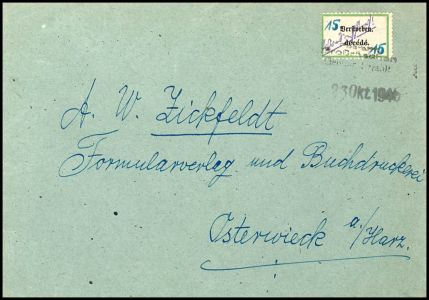 15 Verstorben.
décédé. 15
23 Okt 1946
A. W. Zickfeldt
Formularverlag und Buchdruckerei
Osterwieck a/Harz.